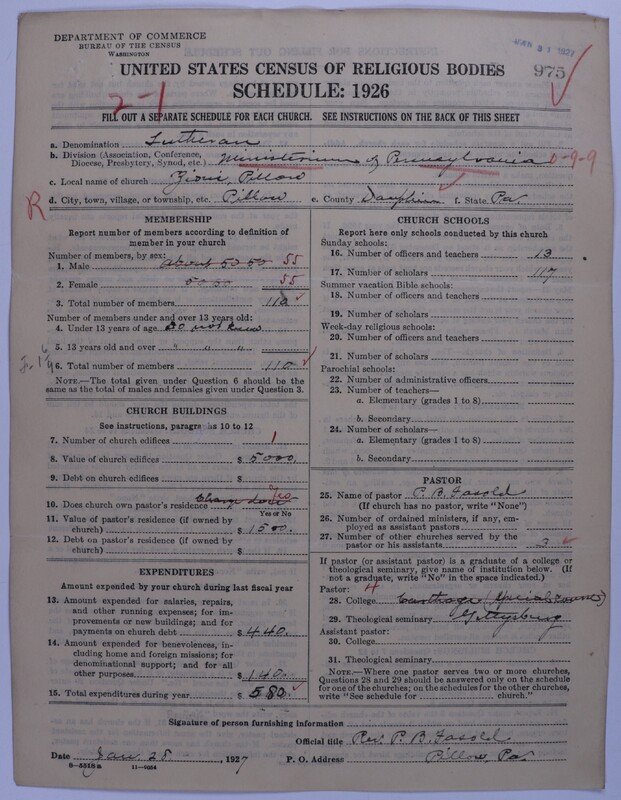 DEPARTMENT OF COMMERCE
BUREAU OF THE CENSUS
WASHINGTON
JAN 31 1927
UNITED STATES CENSUS OF RELIGIOUS BODIES
975
SCHEDULE: 1926
2-1
FILL OUT A SEPARATE SCHEDULE FOR EACH CHURCH. SEE INSTRUCTIONS ON THE BACK OF THIS SHEET
a. Denomination Lutheran
b. Division (Association, Conference, Diocese, Presbytery, Synod, etc.) Ministerium of Pennsylvania 0-9-9
c. Local name of church Zions, Pillow
R
d. City, town, village, or township, etc. Pillow e. County Dauphin f. State Pa.
MEMBERSHIP
Report number of members according to definition of
member in your church
Number of members, by sex:
1. Male about 50 50 55
2. Female 50 50 55
3. Total number of members 110
Number of members under and over 13 years old:
4. Under 13 years of age Do not know
5. 13 years old and over " " "
6. Total number of members 110
NOTE.—The total given under Question 6 should be the
same as the total of males and females given under Question 3.
CHURCH BUILDINGS
See instructions, paragraphs 10 to 12
7. Number of church edifices 1
8. Value of church edifices $ 5000.
9. Debt on church edifices $
10. Does church own pastor's residence Charge does Yes
Yes or No
11. Value of pastor's residence (if owned by
church) $ 1500.
12. Debt on pastor's residence (if owned by
church) $
EXPENDITURES
Amount expended by your church during last fiscal year
13. Amount expended for salaries, repairs,
and other running expenses; for im-
provements or new buildings; and for
payments on church debt $ 440.
14. Amount expended for benevolences, in-
cluding home and foreign missions; for
denominational support; and for all
other purposes 140.
15. Total expenditures during year $ 580.
CHURCH SCHOOLS
Report here only schools conducted by this church
Sunday schools:
16. Number of officers and teachers 13
17. Number of scholars 117
Summer vacation Bible schools:
18. Number of officers and teachers
19. Number of scholars
Week-day religious schools:
20. Number of officers and teachers
21. Number of scholars
Parochial schools:
22. Number of administrative officers
23. Number of teachers—
a. Elementary (grades 1 to 8)
b. Secondary
24. Number of scholars—
a. Elementary (grades 1 to 8)
b. Secondary
PASTOR
25. Name of pastor P. B. Fasold
(If church has no pastor, write "None")
26. Number of ordained ministers, if any, em-
ployed as assistant pastors
27. Number of other churches served by the
pastor or his assistants 3
If pastor (or assistant pastor) is a graduate of a college or
theological seminary, give name of institution below. (If
not a graduate, write "No" in the space indicated.)
Pastor: 4
28. College Carthage (Special course)
29. Theological seminary Gettysburg
Assistant pastor:
30. College
31. Theological seminary
NOTE.—Where one pastor serves two or more churches,
Questions 28 and 29 should be answered only on the schedule
for one of the churches; on the schedules for the other churches,
write "See schedule for church."
Signature of person furnishing information
Official title Rev. P. B. Fasold
Date Jan. 28, 1927 P. O. Address Pillow, Pa.
8-5515a 11-9054